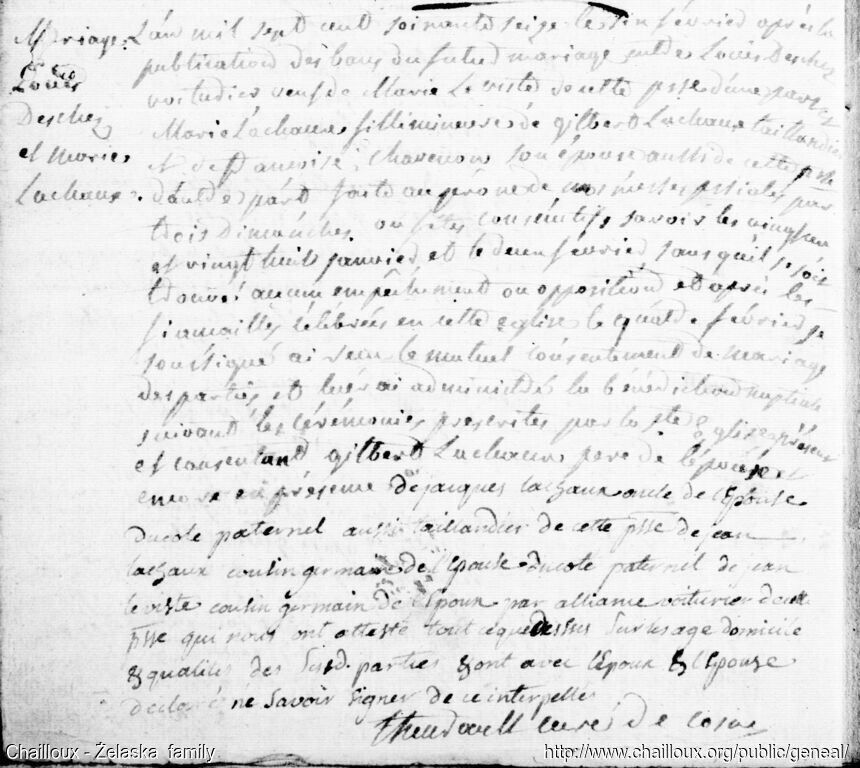 Mariage
Louis
Deschez
et Marie
Lachaux
L'an mil sept cent soixante seize le cinq février après la
publication des bans du futur mariage entre Louis Deschez
voiturier veuf de Marie Leviste de cette psse d'une part et
Marie Lachaux fille mineure de gilbert Lachaux taillandier
et de françoise son épouse aussi de cette psse
d'autre part faite au prône de nos messes psiales par
trois Dimanches ou fêtes consécutifs savoir les vingt un
et vingt huit janvier et le deux février sans qu'il se soit
trouvé aucun empêchement ou opposition et après les
fiancailles célébrées en cette église le quatre février je
soussigné ai recu le mutuel consentement de mariage
des parties et leur ai administré la bénédiction nuptiale
suivant les cérémonies prescrites par la ste Eglise présent
et consentant gilbert Lachaux pere de l'épouse et
encore en présence de jacques lachaux oncle de l'Epouse
du cote paternel aussi taillandier de cette psse de jean
lachaux cousin germain de l'Epouse du cote paternel de jean
leviste cousin germain de l'Epoux par alliance voiturier de cette
psse qui nous ont atteste tout ce que dessus sur les age domicile
& qualites des susd. parties & ont avec l'Epoux & l'Epouse
declaré ne savoir signer de ce interpellés
cure de cosne
Chailloux - Żelaska family
http://www.chailloux.org/public/geneal/